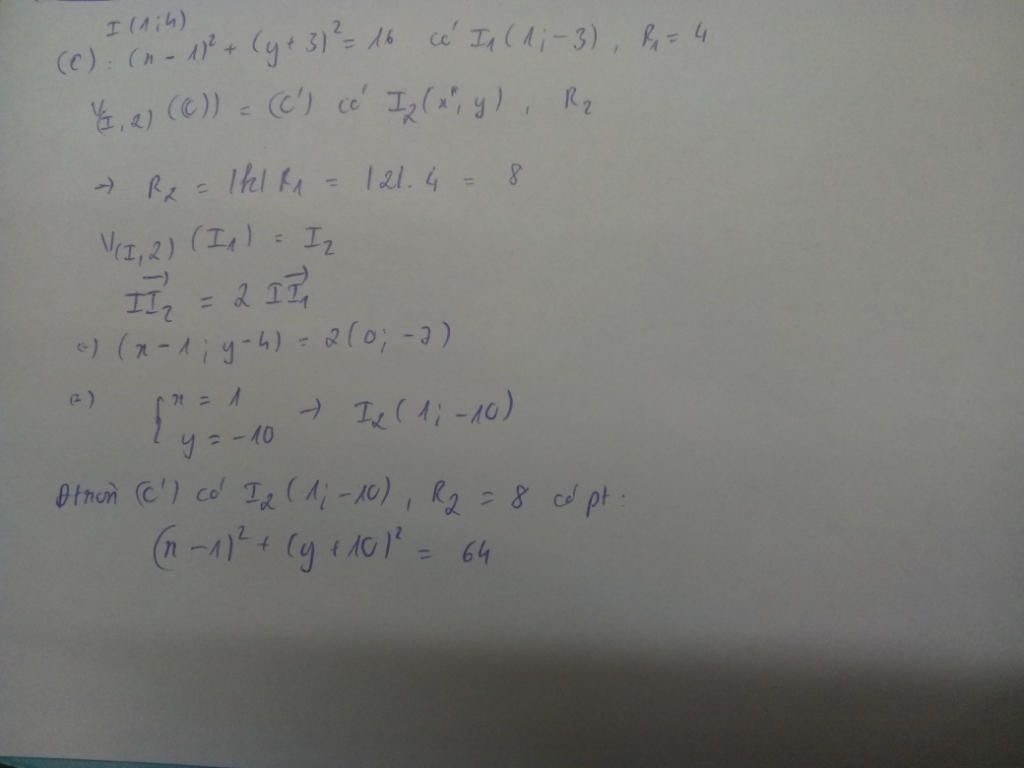 I(1;4)
(C): (x-1)² + (y+3)² = 16 có I₁(1;-3), R₁ = 4
V(I,2) (C)) = (C') có I₂(x, y), R₂
→ R₂ = |k|R₁ = |2|.4 = 8
V(I,2) (I₁) = I₂
II₂ = 2 II₁
⇔) (x-1; y-4) = 2(0; -7)
⇔) { x = 1
y = -10 → I₂(1; -10)
(C') có I₂(1; -10), R₂ = 8 có pt:
(x-1)² + (y+10)² = 64